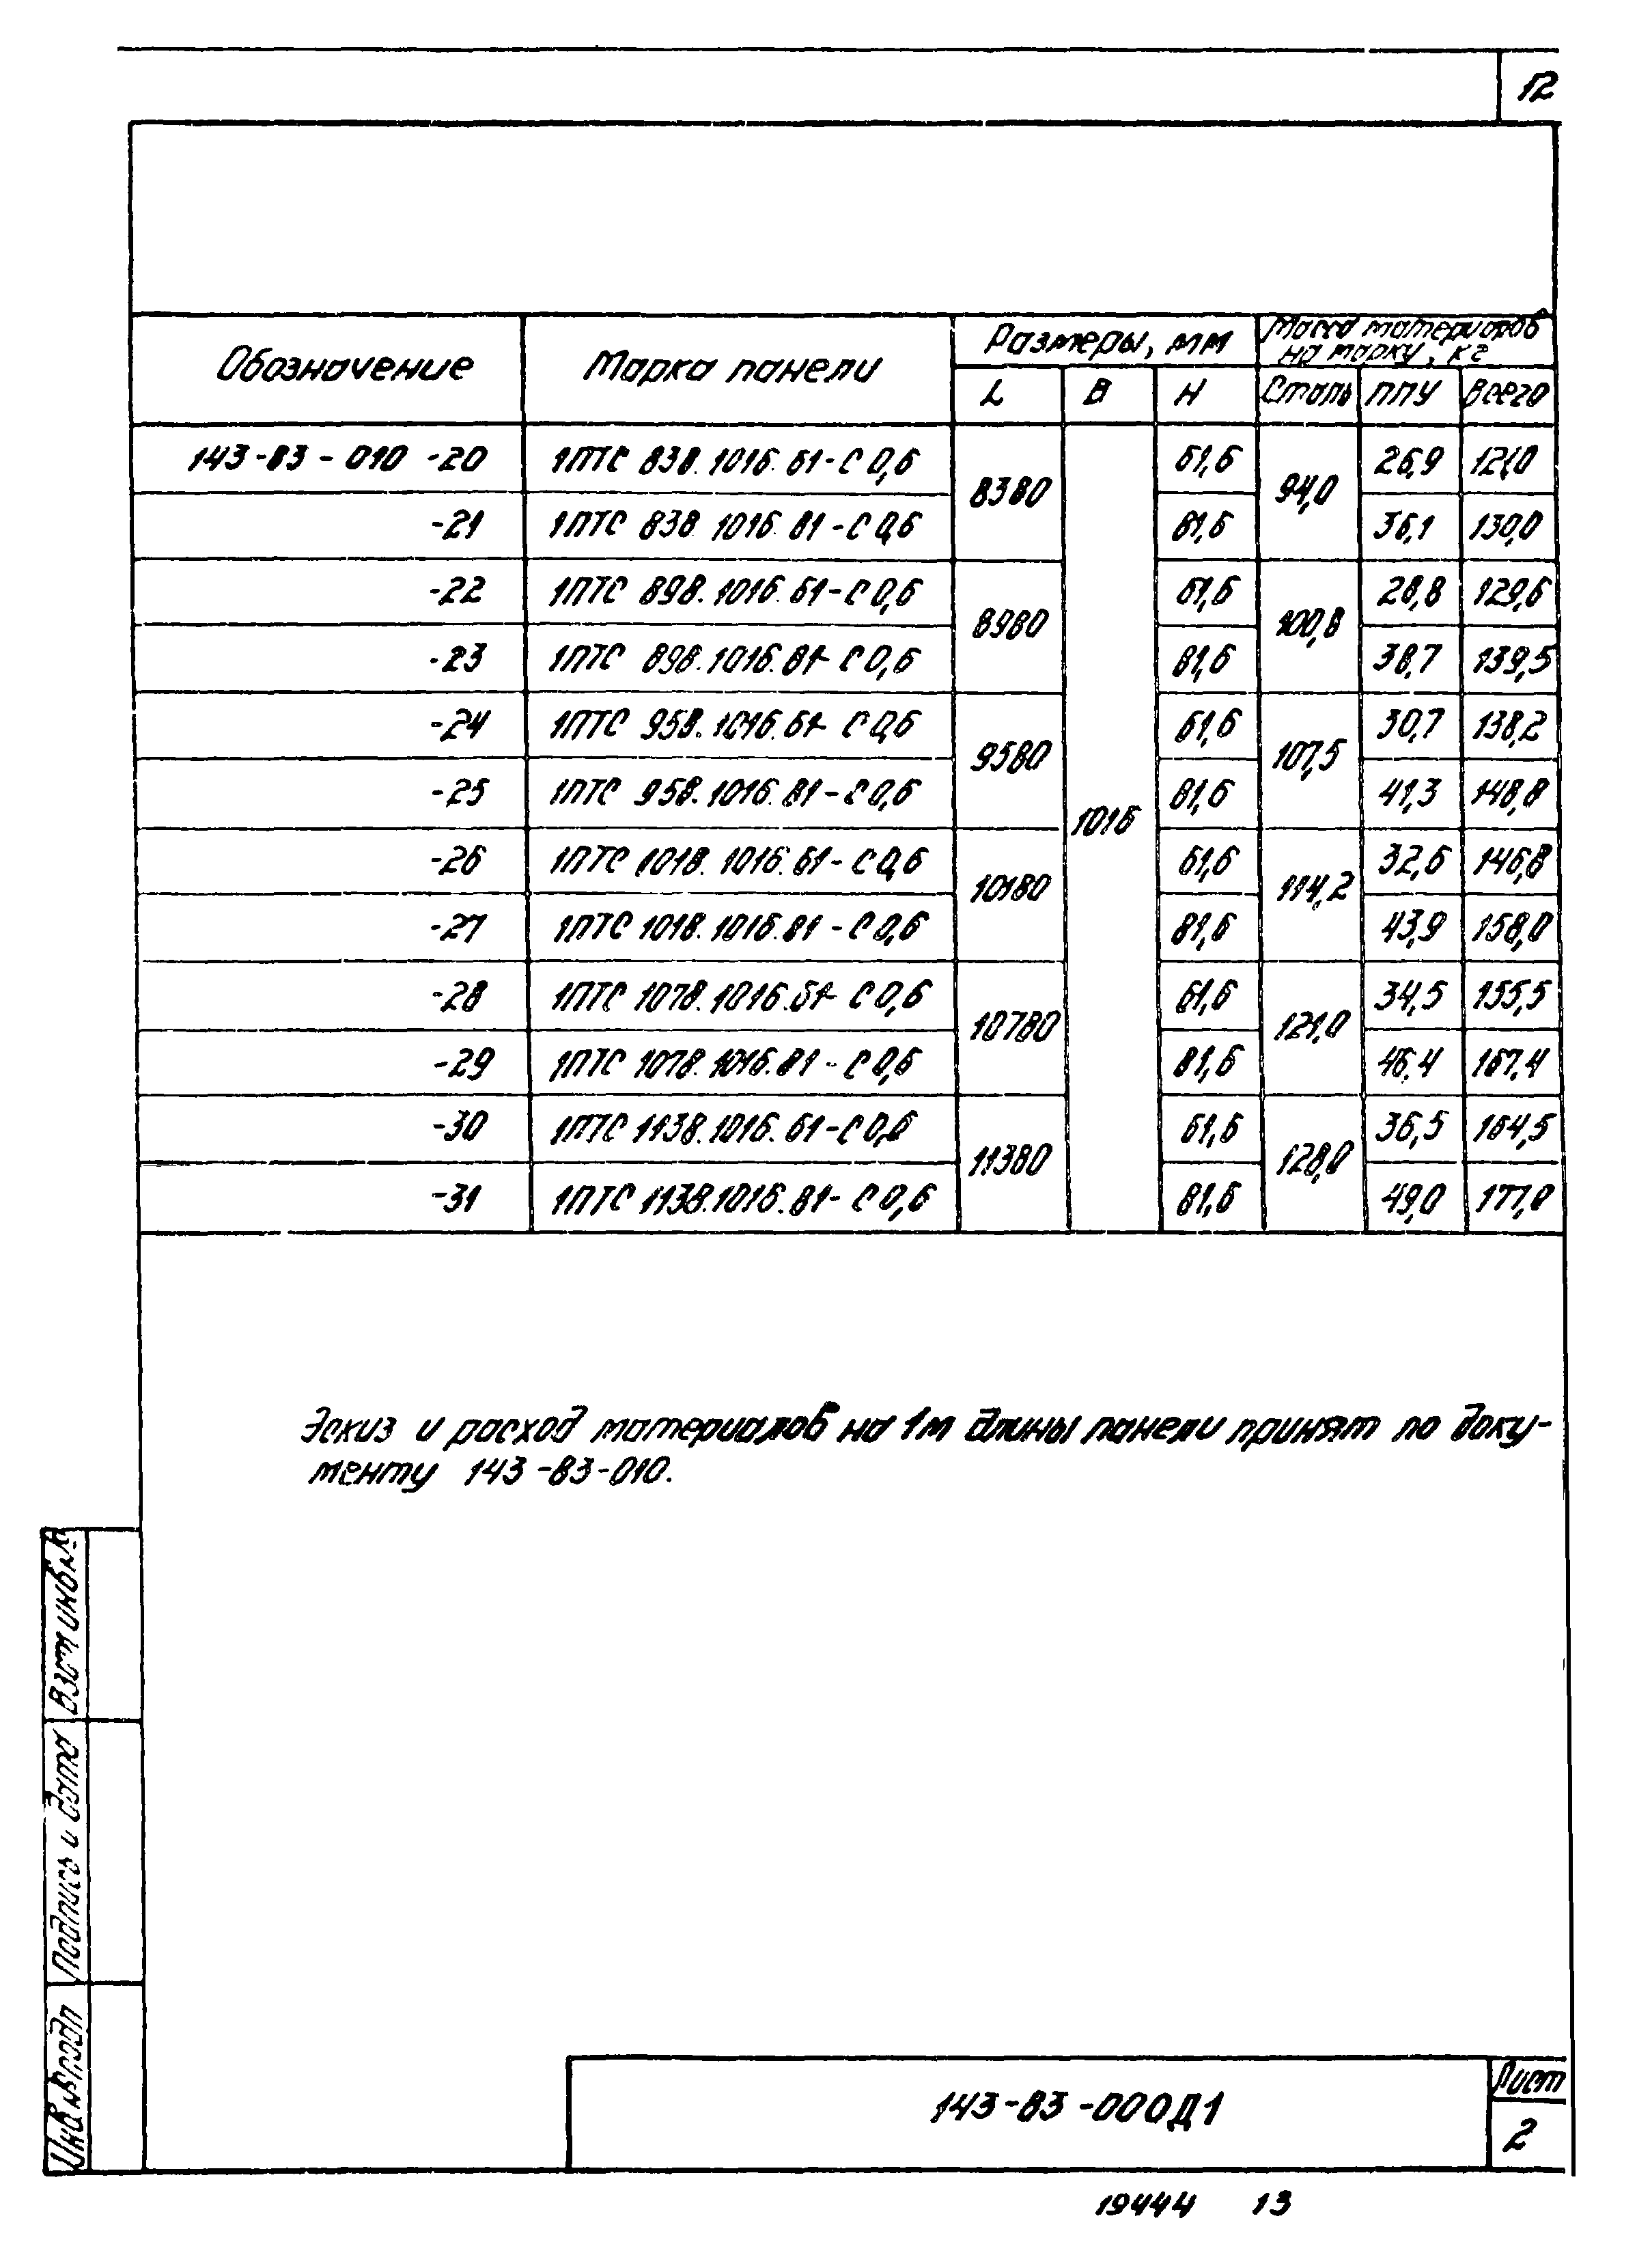 12
Обозначение Марка панели Размеры, мм Масса материалов на марку, кг
L B H Сталь ППУ Всего
143-83-010 -20 1ПТС 838.1016.61-С0,6 8380 1016 61,6 94,0 26,9 121,0
-21 1ПТС 838.1016.81-С0,6 81,6 36,1 130,0
-22 1ПТС 898.1016.61-С0,6 8980 61,6 100,8 28,8 129,6
-23 1ПТС 898.1016.81-С0,6 81,6 38,7 139,5
-24 1ПТС 958.1016.61-С0,6 9580 61,6 107,5 30,7 138,2
-25 1ПТС 958.1016.81-С0,6 81,6 41,3 148,8
-26 1ПТС 1018.1016.61-С0,6 10180 61,6 114,2 32,6 146,8
-27 1ПТС 1018.1016.81-С0,6 81,6 43,9 158,0
-28 1ПТС 1078.1016.61-С0,6 10780 61,6 121,0 34,5 155,5
-29 1ПТС 1078.1016.81-С0,6 81,6 46,4 167,4
-30 1ПТС 1138.1016.61-С0,6 11380 61,6 128,0 36,5 164,5
-31 1ПТС 1138.1016.81-С0,6 81,6 49,0 177,0
Эскиз и расход материалов на 1м длины панели принят по доку-
менту 143-83-010.
Взам инв.№
Подпись и дата
Инв.№ подл
143-83-000Д1
Лист
2
19444 13